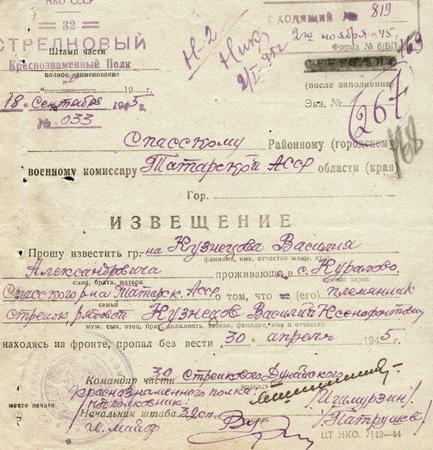 НКО СССР
ВХОДЯЩИЙ № 819
32
СТРЕЛКОВЫЙ
Краснознаменный Полк
Штамп части
полное наименование
Н-2
2го ноября 45г.
Форма № 6/БП
(после заполнения)
Экз. №
267
168
19 г.
18 Сентября 1945г.
№ 033
Спасскому Районному (городскому)
военному комиссару Татарской АССР области (края)
Гор.
ИЗВЕЩЕНИЕ
Прошу известить гр-на Кузнецова Василия
фамилия, имя, отчество жены, отца
Александровича проживающ с.
сына, брата, матери
Спасского р-на Татарск. АССР о том, что (его) племянник
семьи
стрелок, рядовой Кузнецов Василий Ксенофонтович
муж, сын, отец, брат, должность, звание, фамилия, имя и отчество
находясь на фронте, пропал без вести 30 апреля 1945г
Командир части 30 стрелкового Дунайского
Краснознаменного полка
подполковник:
место печати
Начальник штаба 32сп.
гв. майор
/Патрушев/
ЦТ НКО. 7149-44